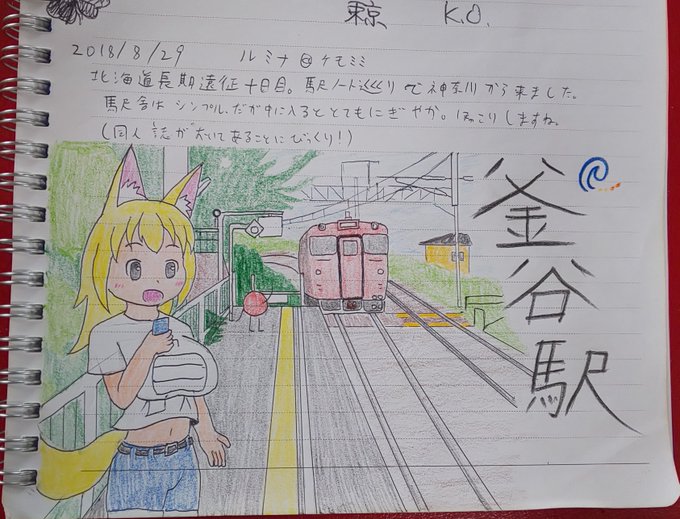 東京 K.O.
2018/8/29 ルミナ@ケモミミ
北海道長期遠征十日目。駅ノート巡りで神奈川から来ました。
駅舎はシンプル。だが中に入るととてもにぎやか。ほっこりしますね。
(同人誌がおいてあることにびっくり!)
釜谷駅